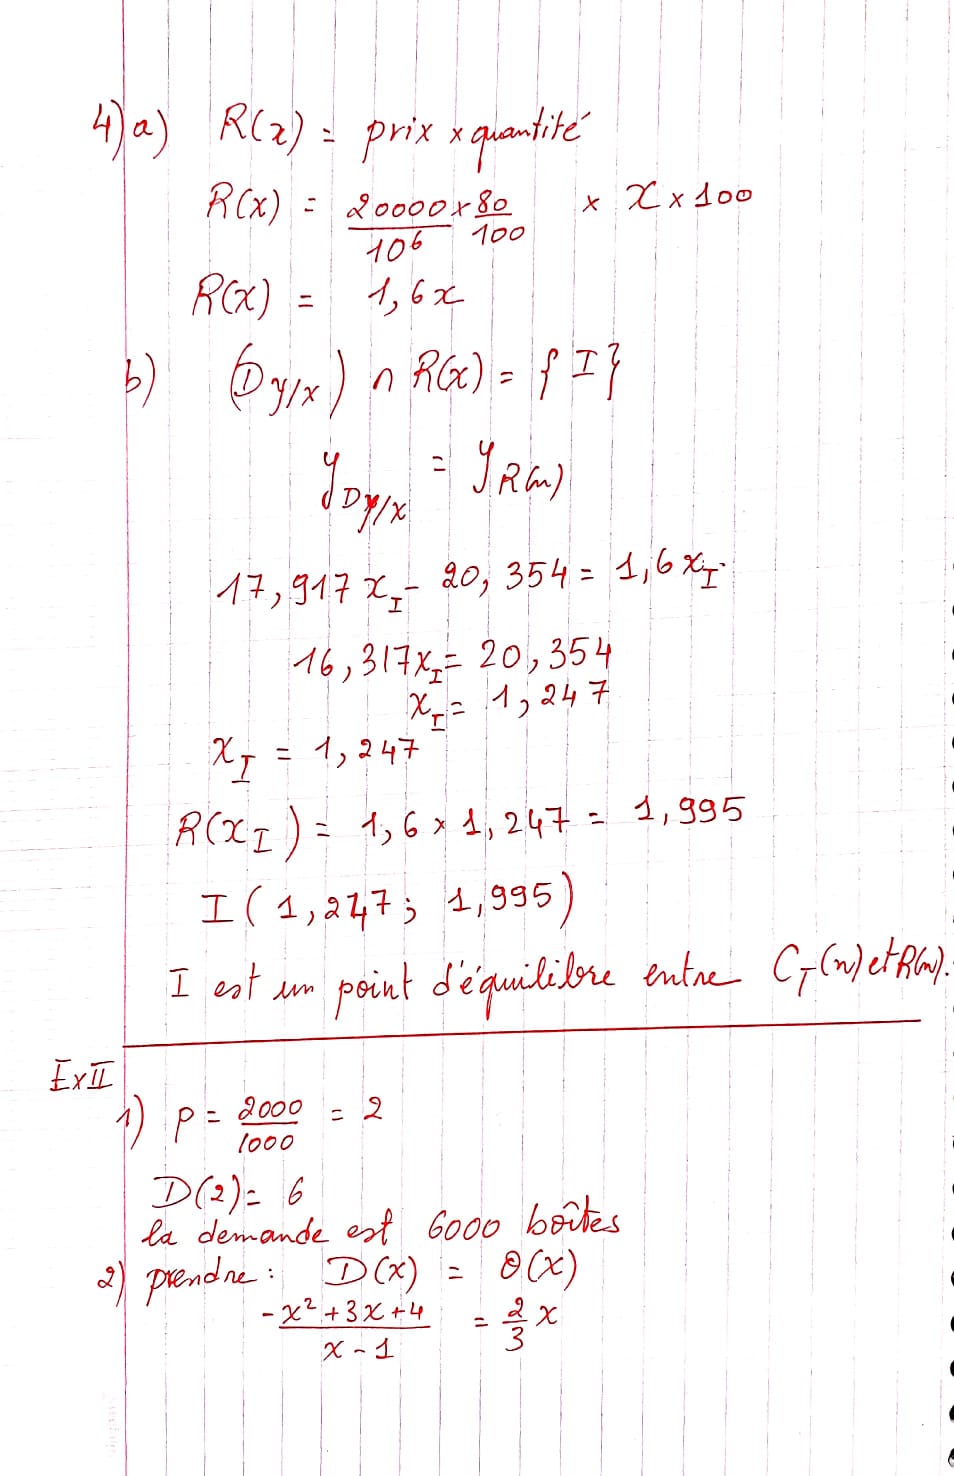 4) a) R(x) = prix x quantité
R(x) = 20000 x 80 / 10⁶ 100 x x x 100
R(x) = 1,6x
b) (D y/x) ∩ R(x) = { I }
y D y/x = y R(x)
17,917 x_I - 20,354 = 1,6 x_I
16,317 x_I = 20,354
x_I = 1,247
x_I = 1,247
R(x_I) = 1,6 x 1,247 = 1,995
I ( 1,247 ; 1,995)
I est un point d'équilibre entre C_T(x) et R(x).
Ex II
1) P = 2000/1000 = 2
D(2) = 6
la demande est 6000 boîtes
2) prendre : D(x) = O(x)
-x² + 3x + 4 / x - 1 = 2/3 x